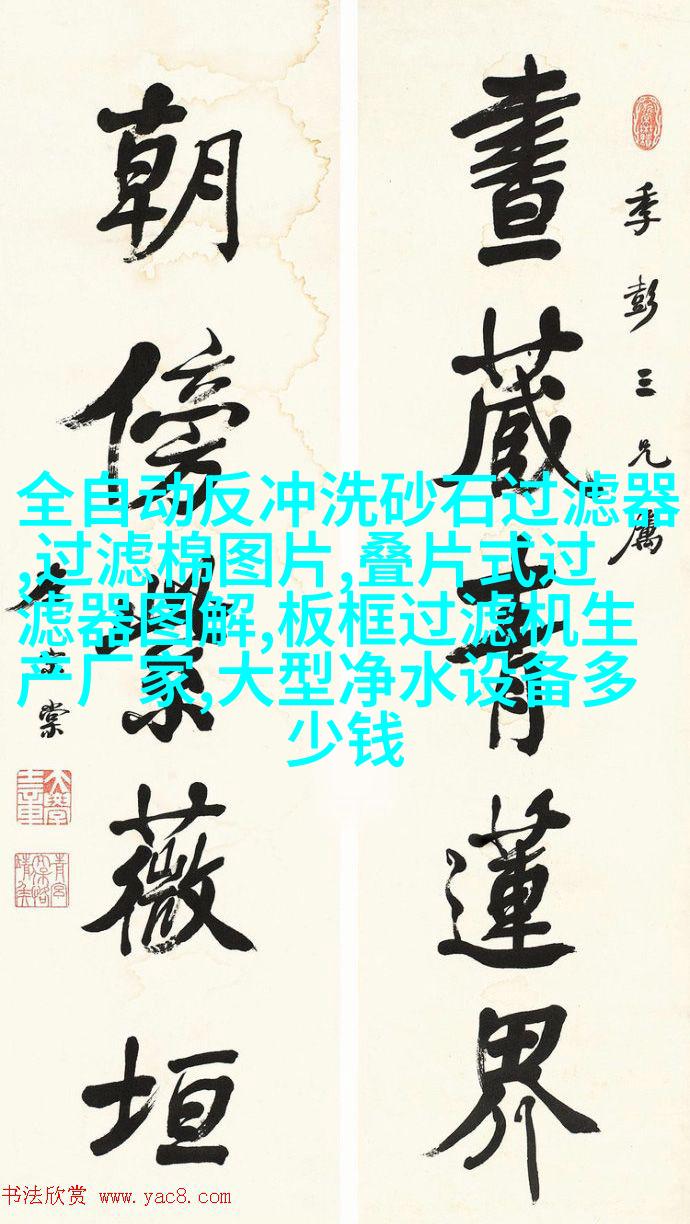 季彭三兄屬
晝藏青蓮界
朝傍紫薇垣
左宗棠
全自动反冲洗砂石过滤器
,过滤棉图片,叠片式过
滤器图解,板框过滤机生
产厂家,大型净水设备多
少钱
书法欣赏 www.yac8.com